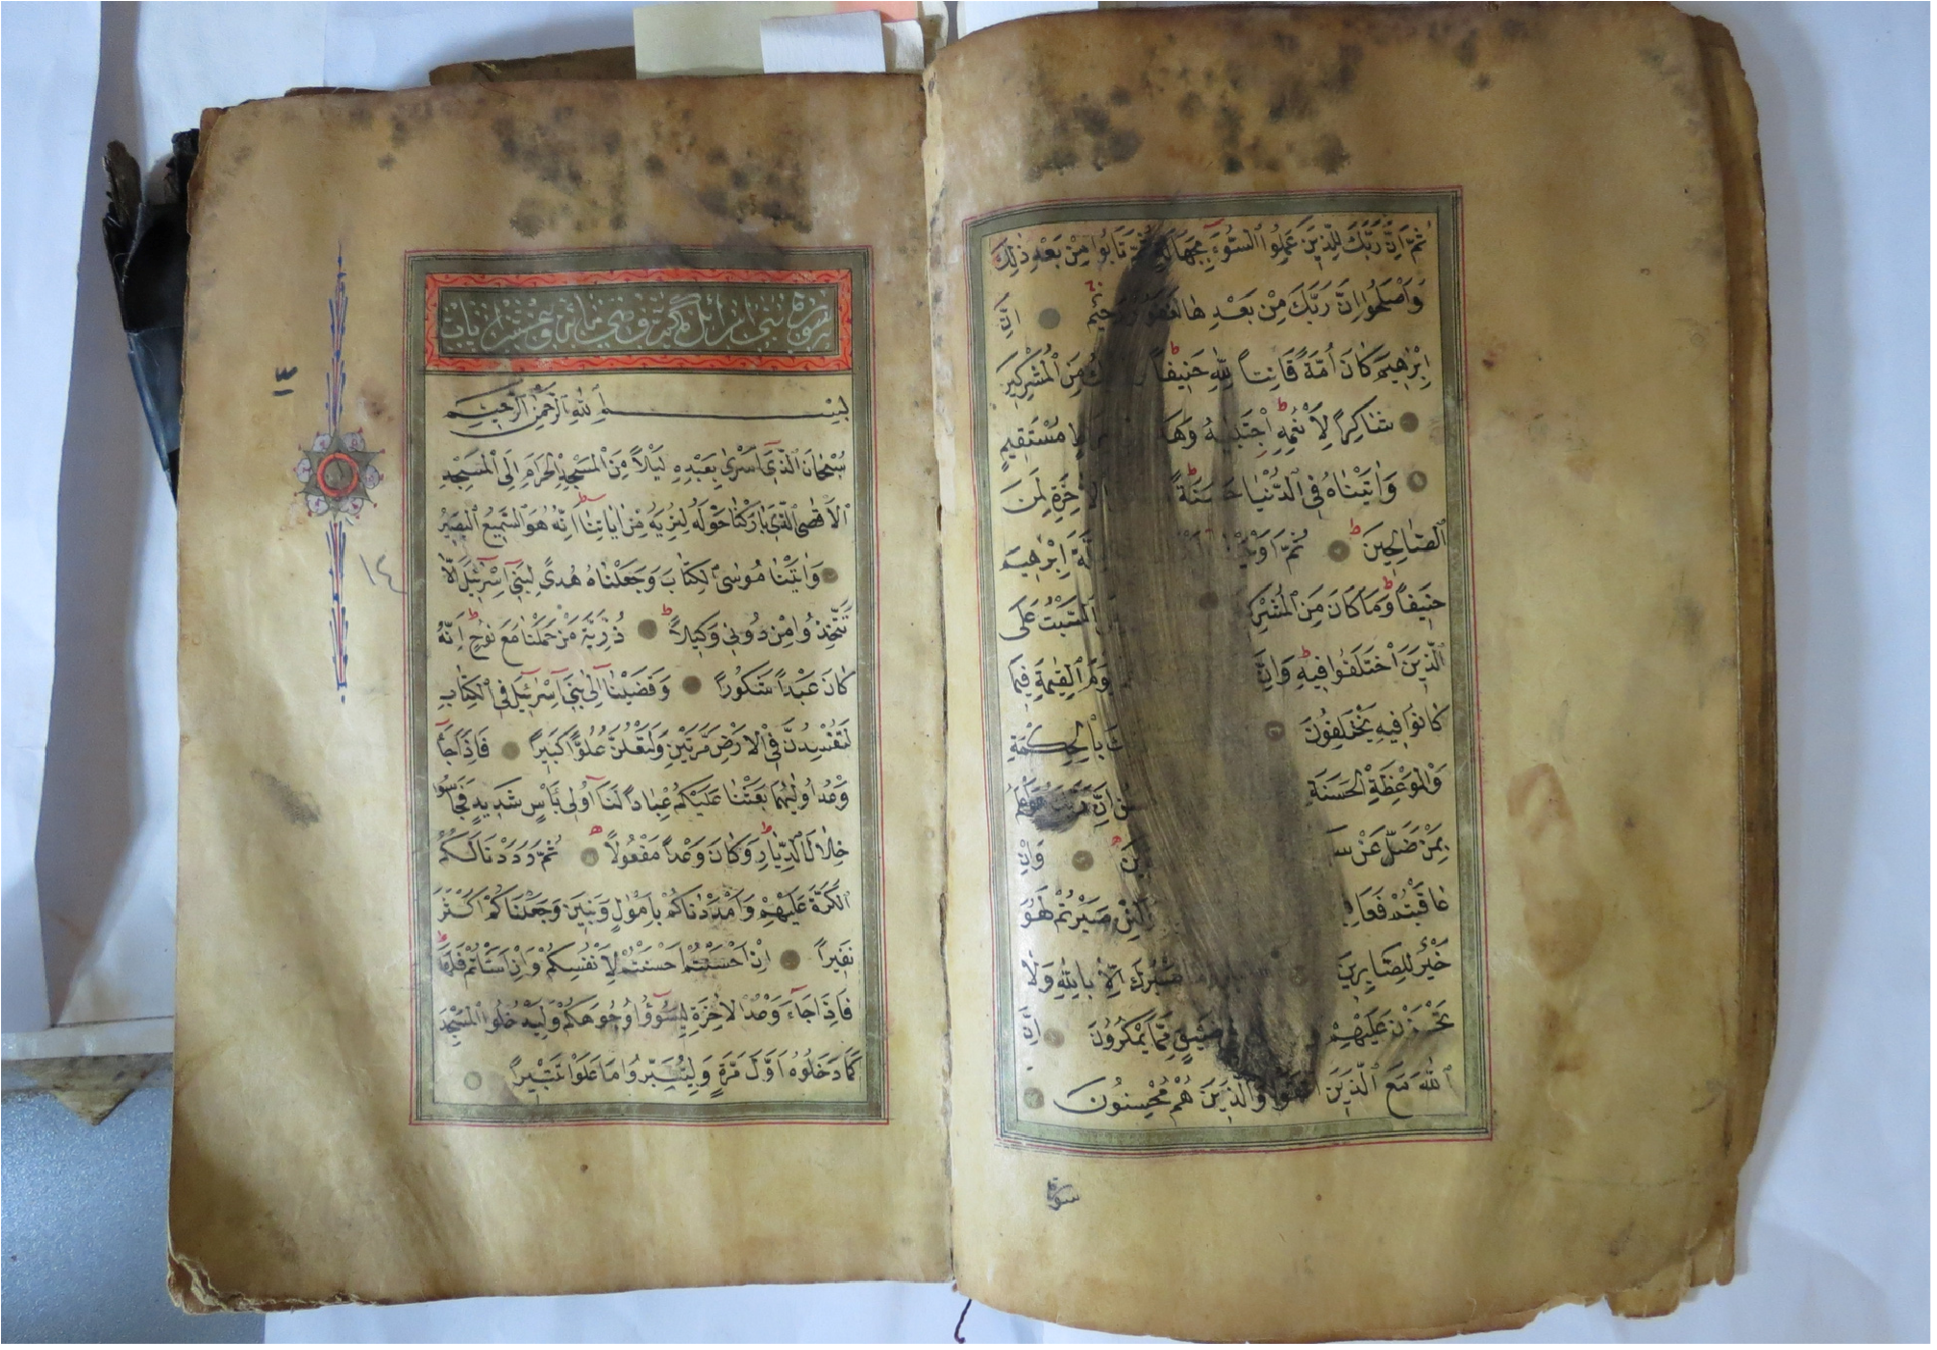 ثُمَّ اِنَّ رَبَّكَ لِلَّذِينَ عَمِلُوا ٱلسُّوٓءَ بِجَهَالَةٍ ثُمَّ تَابُوا مِنْ بَعْدِ ذٰلِكَ
وَاَصْلَحُوا اِنَّ رَبَّكَ مِنْ بَعْدِهَا لَغَفُورٌ رَحِيمٌ اِنَّ
اِبْرٰهِيمَ كَانَ اُمَّةً قَانِتاً لِلّٰهِ حَنِيفاً مِنَ ٱلْمُشْرِكِينَ
شَاكِراً لِاَنْعُمِهِ اِجْتَبٰيهُ مُسْتَقِيمٍ
وَاٰتَيْنَاهُ فِي ٱلدُّنْيَا حَسَنَةً لَمِنَ
ٱلصَّالِحِينَ ثُمَّ اِبْرٰهِيمَ
حَنِيفاً وَمَا كَانَ مِنَ ٱلسَّبْتُ عَلَى
ٱلَّذِينَ ٱخْتَلَفُوا فِيهِ وَاِنَّ ٱلْقِيٰمَةِ فِيمَا
كَانُوا فِيهِ يَخْتَلِفُونَ بِالْحِكْمَةِ
وَٱلْمَوْعِظَةِ ٱلْحَسَنَةِ اِنَّ رَبَّكَ هُوَ اَعْلَمُ
بِمَنْ ضَلَّ عَنْ وَاِنْ
عَاقَبْتُمْ صَبَرْتُمْ لَهُوَ
خَيْرٌ لِلصَّابِرِينَ صَبْرُكَ اِلَّا بِاللّٰهِ وَلَا
تَحْزَنْ عَلَيْهِمْ ضَيْقٍ مِمَّا يَمْكُرُونَ اِنَّ
ٱللّٰهَ مَعَ ٱلَّذِينَ ٱتَّقَوْا وَٱلَّذِينَ هُمْ مُحْسِنُونَ
سورة
سورة بني اسرائل مكية وهي مائة وعشر ايات
بِسْمِ ٱللّٰهِ ٱلرَّحْمٰنِ ٱلرَّحِيمِ
سُبْحَانَ ٱلَّذِىٓ اَسْرٰى بِعَبْدِهِ لَيْلاً مِنَ ٱلْمَسْجِدِ ٱلْحَرَامِ اِلَى ٱلْمَسْجِدِ
ٱلْاَقْصَى ٱلَّذِى بَارَكْنَا حَوْلَهُ لِنُرِيَهُ مِنْ اٰيَاتِنَا اِنَّهُ هُوَ ٱلسَّمِيعُ ٱلْبَصِيرُ
وَاٰتَيْنَا مُوسَى ٱلْكِتَابَ وَجَعَلْنَاهُ هُدًى لِبَنِىٓ اِسْرٰٓئِيلَ اَلَّا
تَتَّخِذُوا مِنْ دُونِى وَكِيلاً ذُرِّيَّةَ مَنْ حَمَلْنَا مَعَ نُوحٍ اِنَّهُ
كَانَ عَبْداً شَكُوراً وَقَضَيْنَآ اِلٰى بَنِىٓ اِسْرٰٓئِيلَ فِى ٱلْكِتَابِ
لَتُفْسِدُنَّ فِى ٱلْاَرْضِ مَرَّتَيْنِ وَلَتَعْلُنَّ عُلُوًّا كَبِيراً فَاِذَا جَآءَ
وَعْدُ اُولٰيهُمَا بَعَثْنَا عَلَيْكُمْ عِبَاداً لَنَآ اُولِى بَأْسٍ شَدِيدٍ فَجَاسُوا
خِلَالَ ٱلدِّيَارِ وَكَانَ وَعْداً مَفْعُولاً ثُمَّ رَدَدْنَا لَكُمُ
ٱلْكَرَّةَ عَلَيْهِمْ وَاَمْدَدْنَاكُمْ بِاَمْوٰلٍ وَبَنِينَ وَجَعَلْنَاكُمْ اَكْثَرَ
نَفِيراً اِنْ اَحْسَنْتُمْ اَحْسَنْتُمْ لِاَنْفُسِكُمْ وَاِنْ اَسَأْتُمْ فَلَهَا
فَاِذَا جَآءَ وَعْدُ ٱلْاٰخِرَةِ لِيَسُٓؤُا وُجُوهَكُمْ وَلِيَدْخُلُوا ٱلْمَسْجِدَ
كَمَا دَخَلُوهُ اَوَّلَ مَرَّةٍ وَلِيُتَبِّرُوا مَا عَلَوْا تَتْبِيراً
١٤